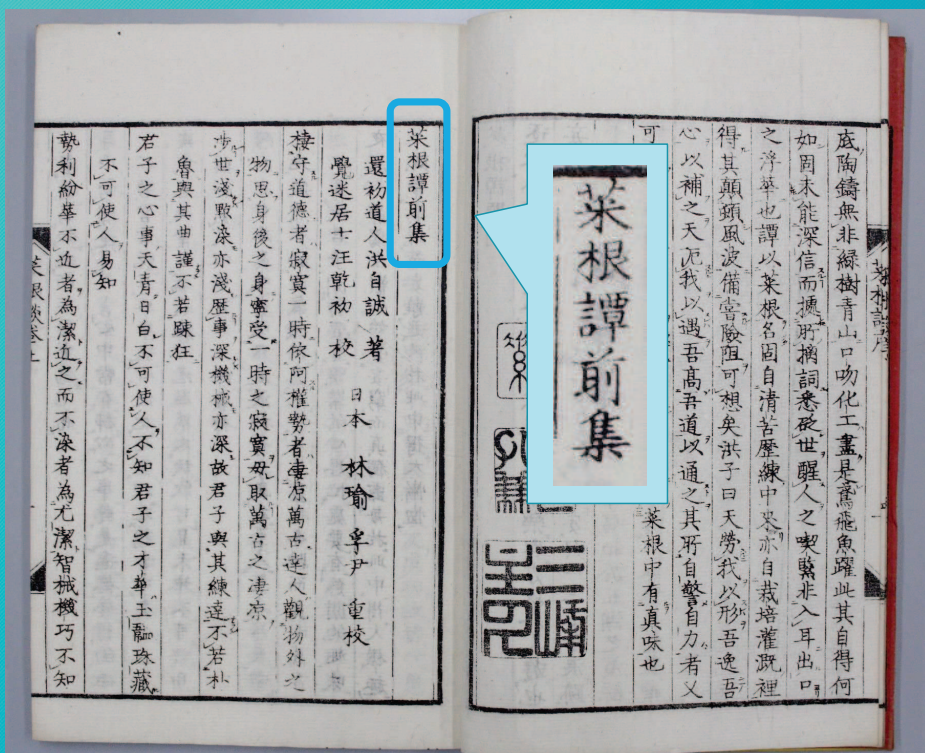 底陶鋳無非緑樹青山口吻化工盡是鳶飛魚躍此其自得何
如固未能深信而據所摘詞悉砭世醒人之喫緊非入耳出口
之浮華也譚以菜根名固自清苦歴練中来亦自栽培灌漑裡
得其顛頓風波備嘗險阻可想矣洪子曰天勞我以形吾逸吾
心以補之天阨我以遇吾高吾道以通之其所自警自力者又
可
菜根中有真味也
菜根譚前集
菜根譚前集
還初道人洪自誠著
覺迷居士汪乾初校
日本 林瑜孚尹 重校
棲守道德者寂寞一時依阿權勢者凄凉萬古達人觀物外之
物思身後之身寧受一時之寂寞毋取萬古之凄凉
渉世淺點染亦淺歴事深機械亦深故君子與其練達不若朴
魯與其曲謹不若踈狂
君子之心事天青日白不可使人不知君子之才華玉韞珠藏
不可使人易知
勢利紛華不近者為潔近之而不染者為尤潔智械機巧不知